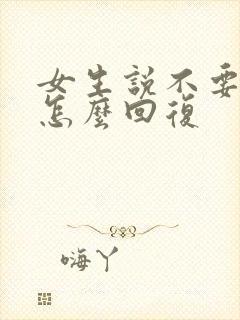 女生說不要
怎麼回復
嗨丫